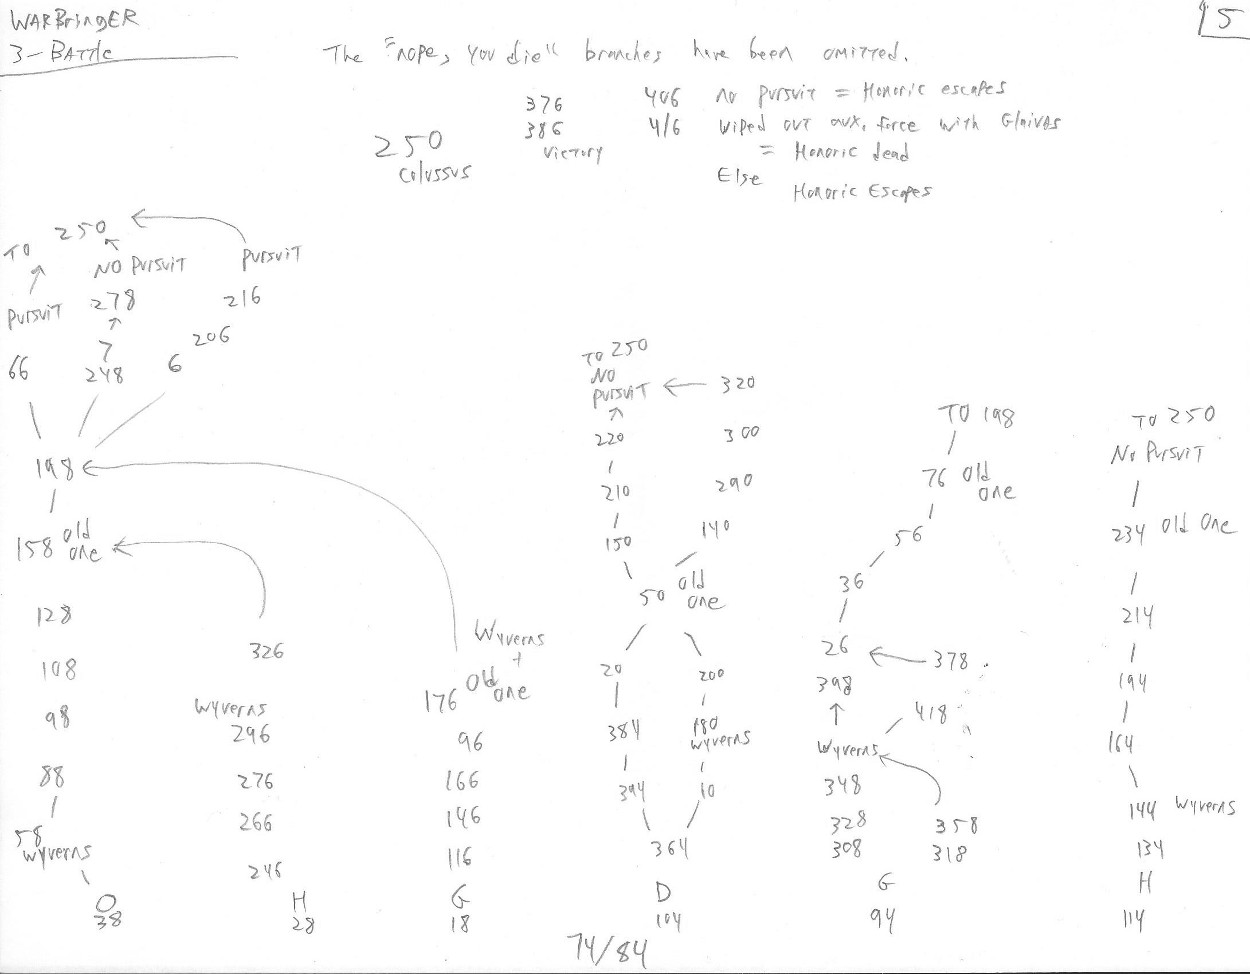 WARBringER
3-BATTle
15
The "nope, you die" branches have been omitted.
376
386
victory
406 no pursuit = Honoric escapes
416 wiped out aux. force with Glaivas
= Honoric dead
Else
Honoric Escapes
250
Colussus
TO 250
NO Pursuit
Pursuit
Pursuit
278
216
206
7
66
248
6
198
158 old one
128
108
98
88
58
Wyverns
O
38
326
Wyverns
296
276
266
246
H
28
Wyverns
+
Old one
176
96
166
146
116
G
18
TO 250
NO
Pursuit
320
220
300
210
290
150
140
50 old one
20
200
384
180
wyverns
394
10
364
D
104
74/84
TO 198
76 old one
56
36
26
378
398
418
Wyverns
348
328
358
308
318
G
94
To 250
No Pursuit
234 old One
214
194
164
144 wyverns
134
H
114